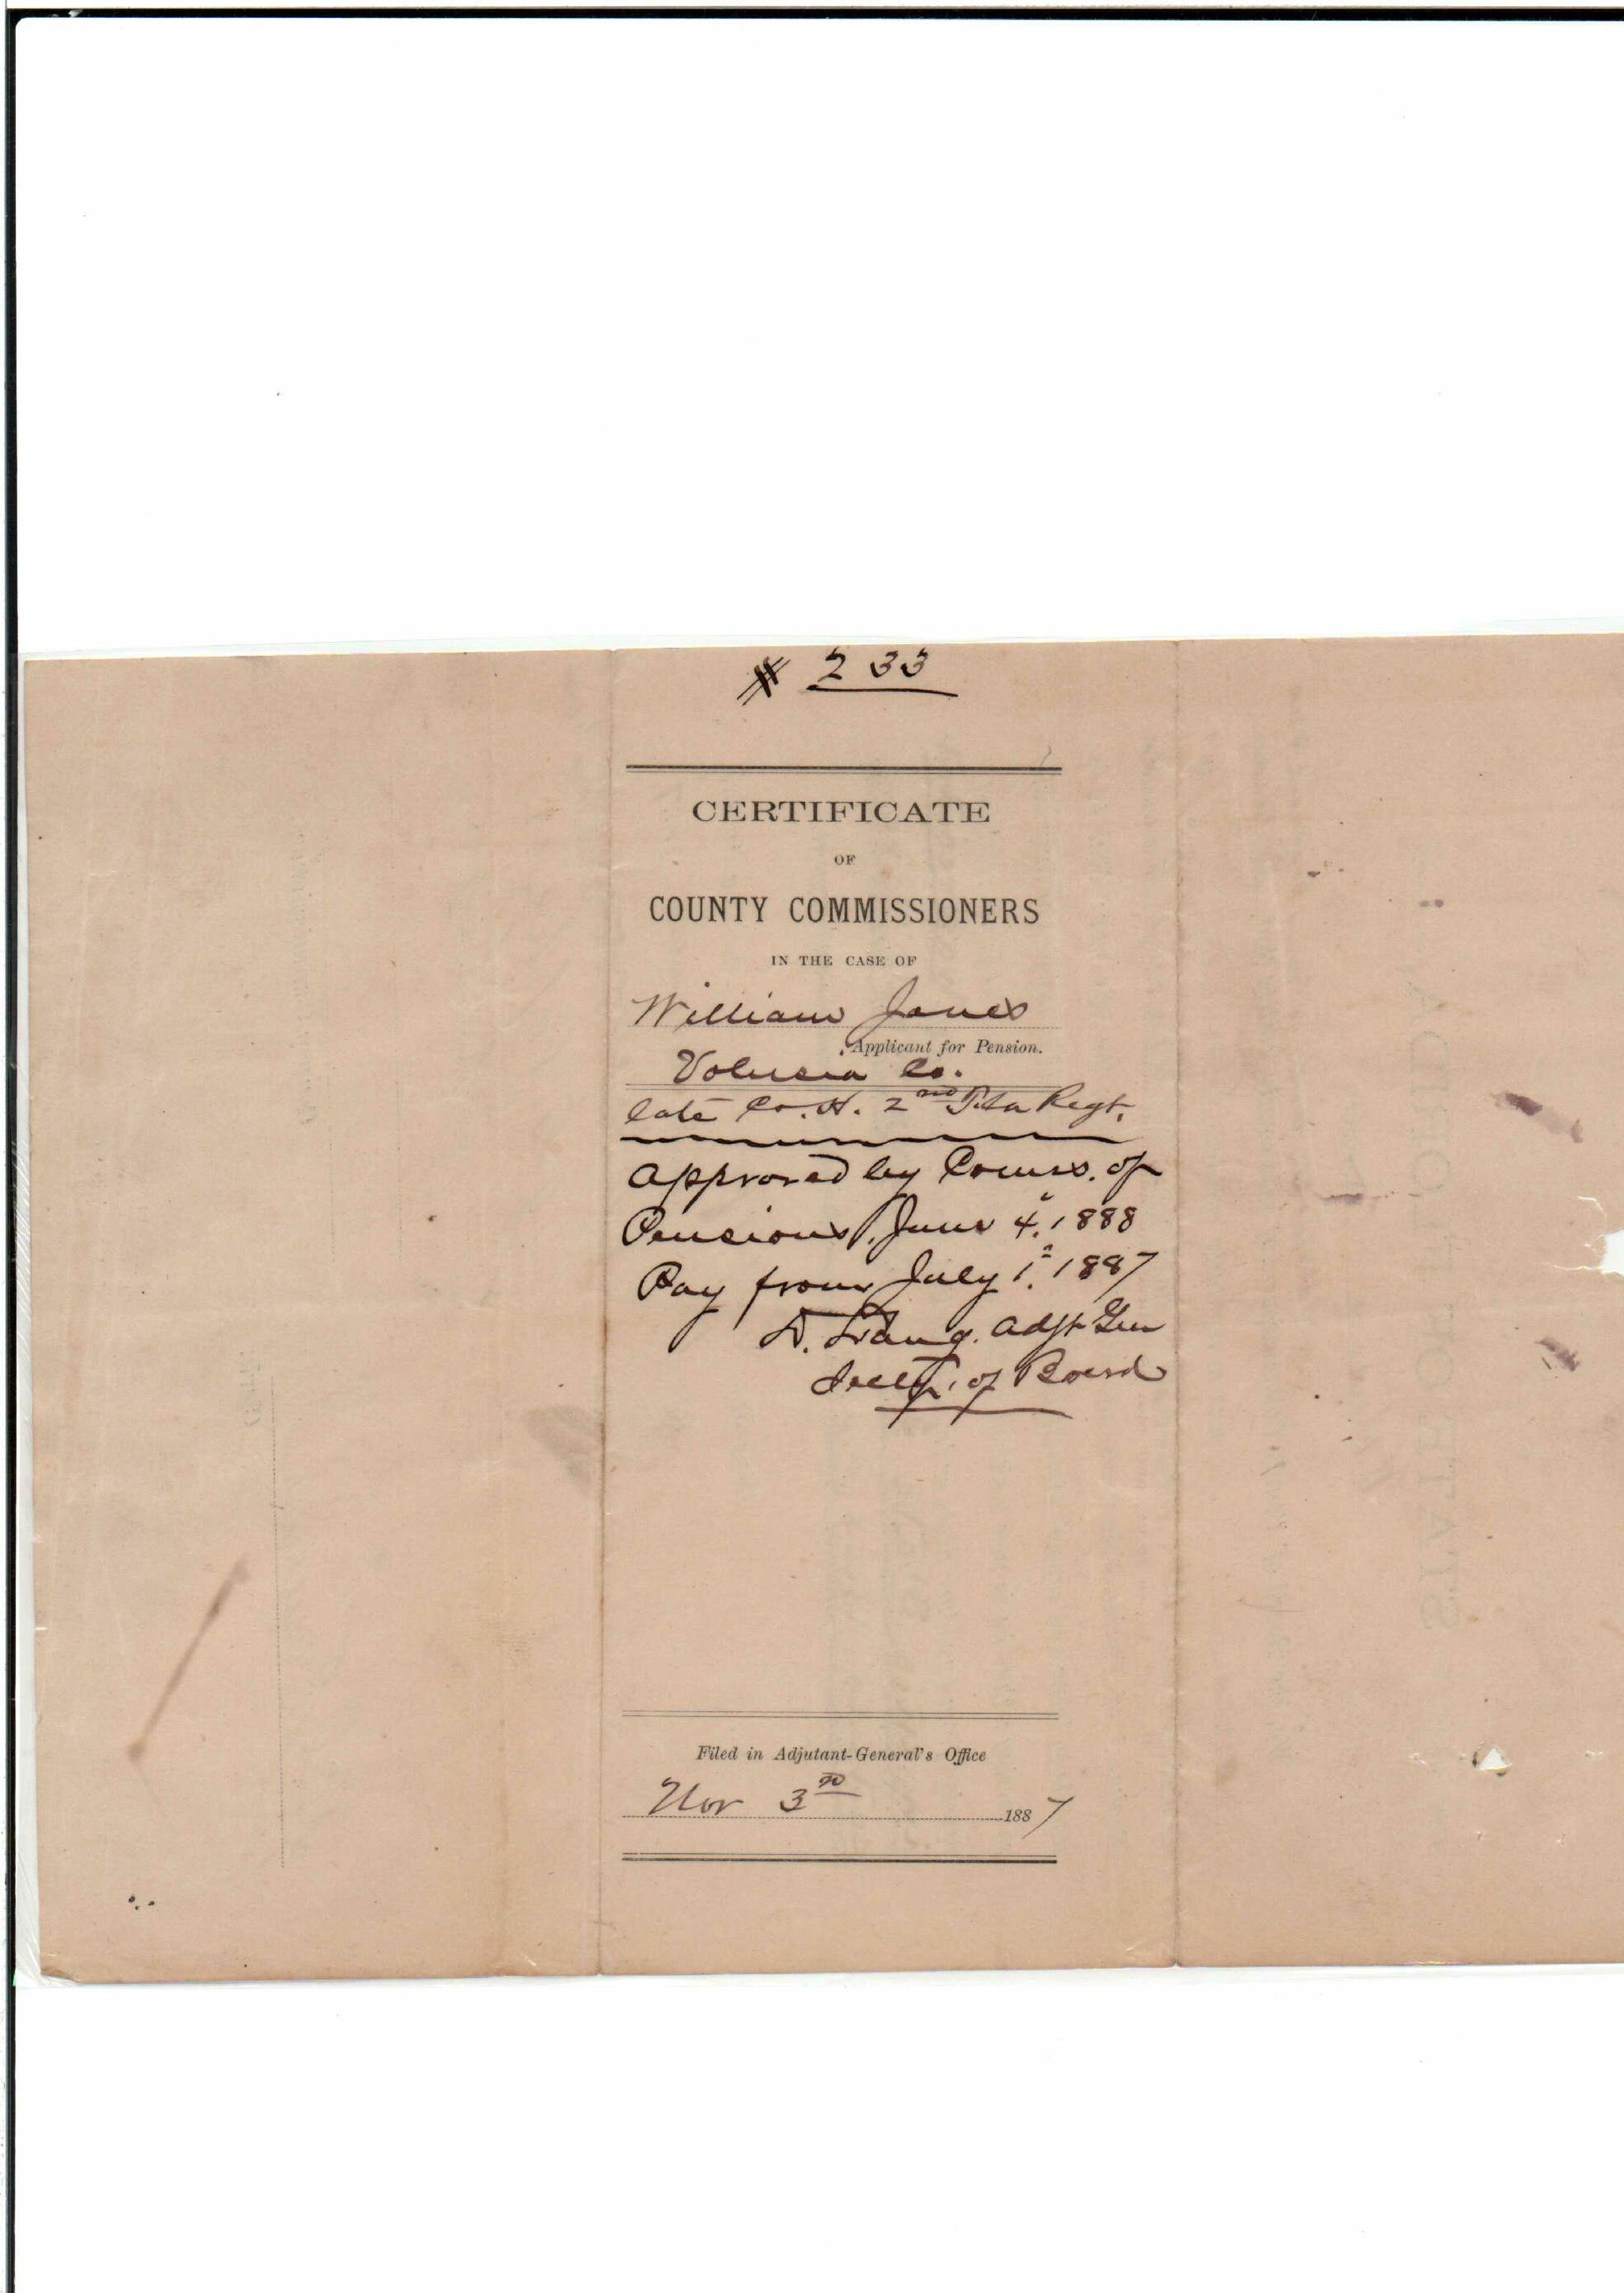 # 233
CERTIFICATE
OF
COUNTY COMMISSIONERS
IN THE CASE OF
William Jones
Applicant for Pension.
Volusia Co.
late Co. H. 2nd Fla Regt.
Approved by Comrs. of
Pensions, June 4", 1888
Pay from July 1", 1887
D. Lang. Adjt Gen
Secty. of Board
Filed in Adjutant-General's Office
Nov 3rd 1887